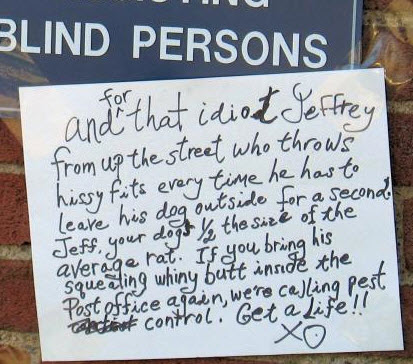 BLIND PERSONS
and for that idiot Jeffrey
from up the street who throws
hissy fits every time he has to
leave his dog outside for a second.
Jeff, your dogs 1/2 the size of the
average rat. If you bring his
squealing whiny butt inside the
Post office again, we're calling pest
control. Get a Life!!
XO